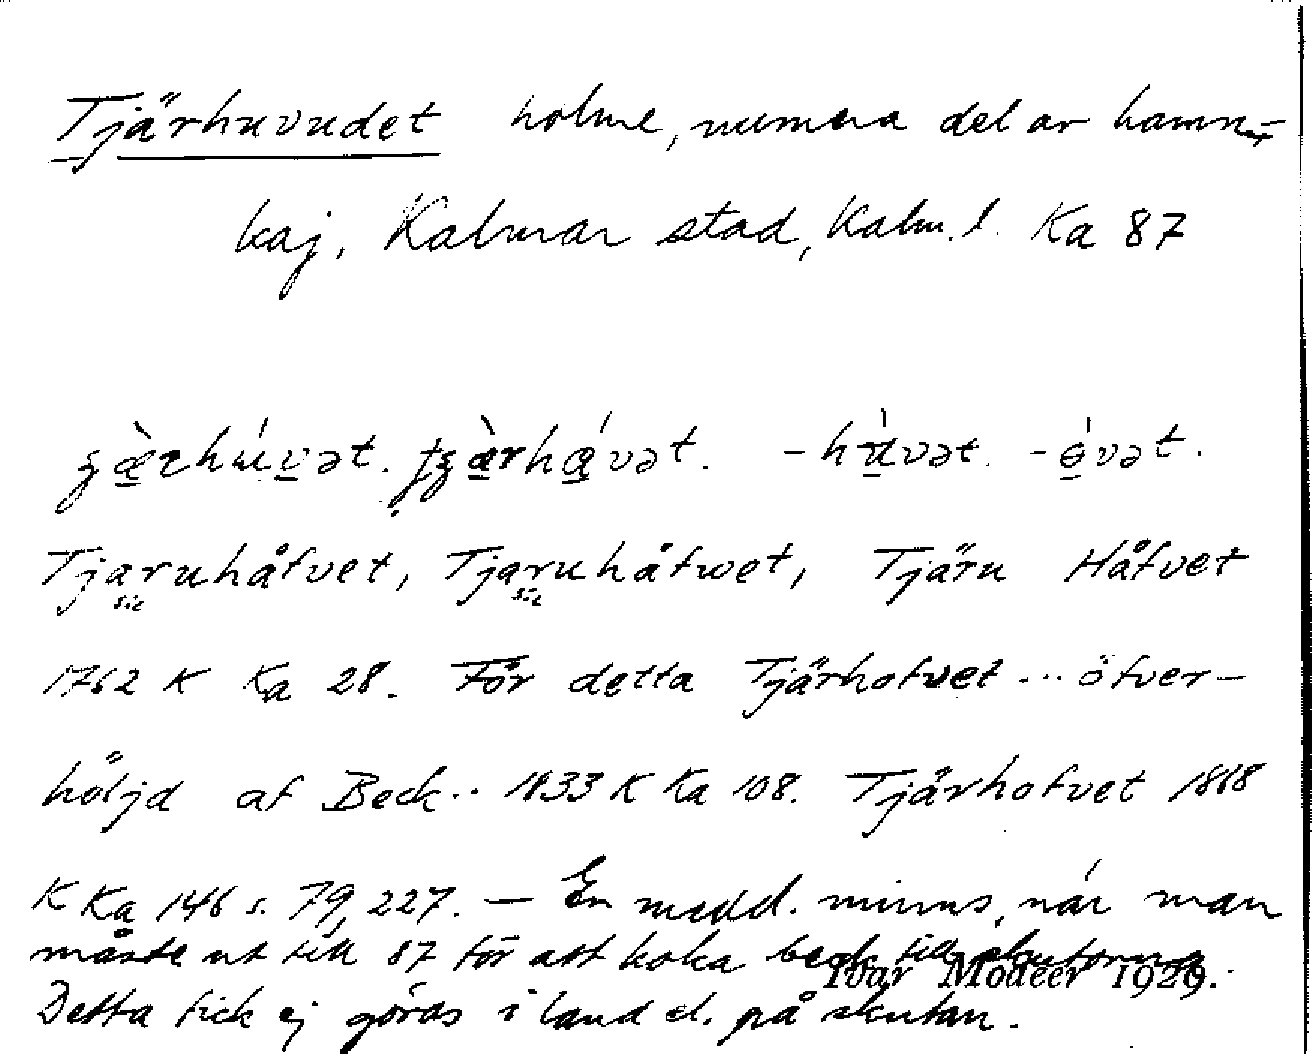 Tjärhuvudet holme, numera del av hamn-
kaj, Kalmar stad, Kalm. l. Ka 87
Tjaruhåfvet, Tjaruhåfwet, Tjäru Håfvet
sic sic
1762 K Ka 28. För detta Tjärhofvet ... öfver-
höljd af Beck.. 1833 K Ka 108. Tjärhofvet 1868
K Ka 146 s. 79, 227. — En medd. minns, när man
måste ut till 87 för att koka beck till skutorna
Ivar Modéer 1929.
Detta fick ej göras i land el. på skutan.